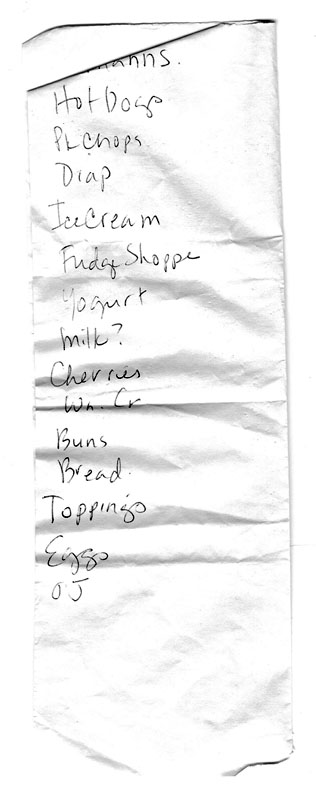 Hot Dogs
Pk Chops
Diap
Ice Cream
Fudge Shoppe
Yogurt
Milk?
Cherries
Wh. Cr
Buns
Bread.
Toppings
Eggs
OJ